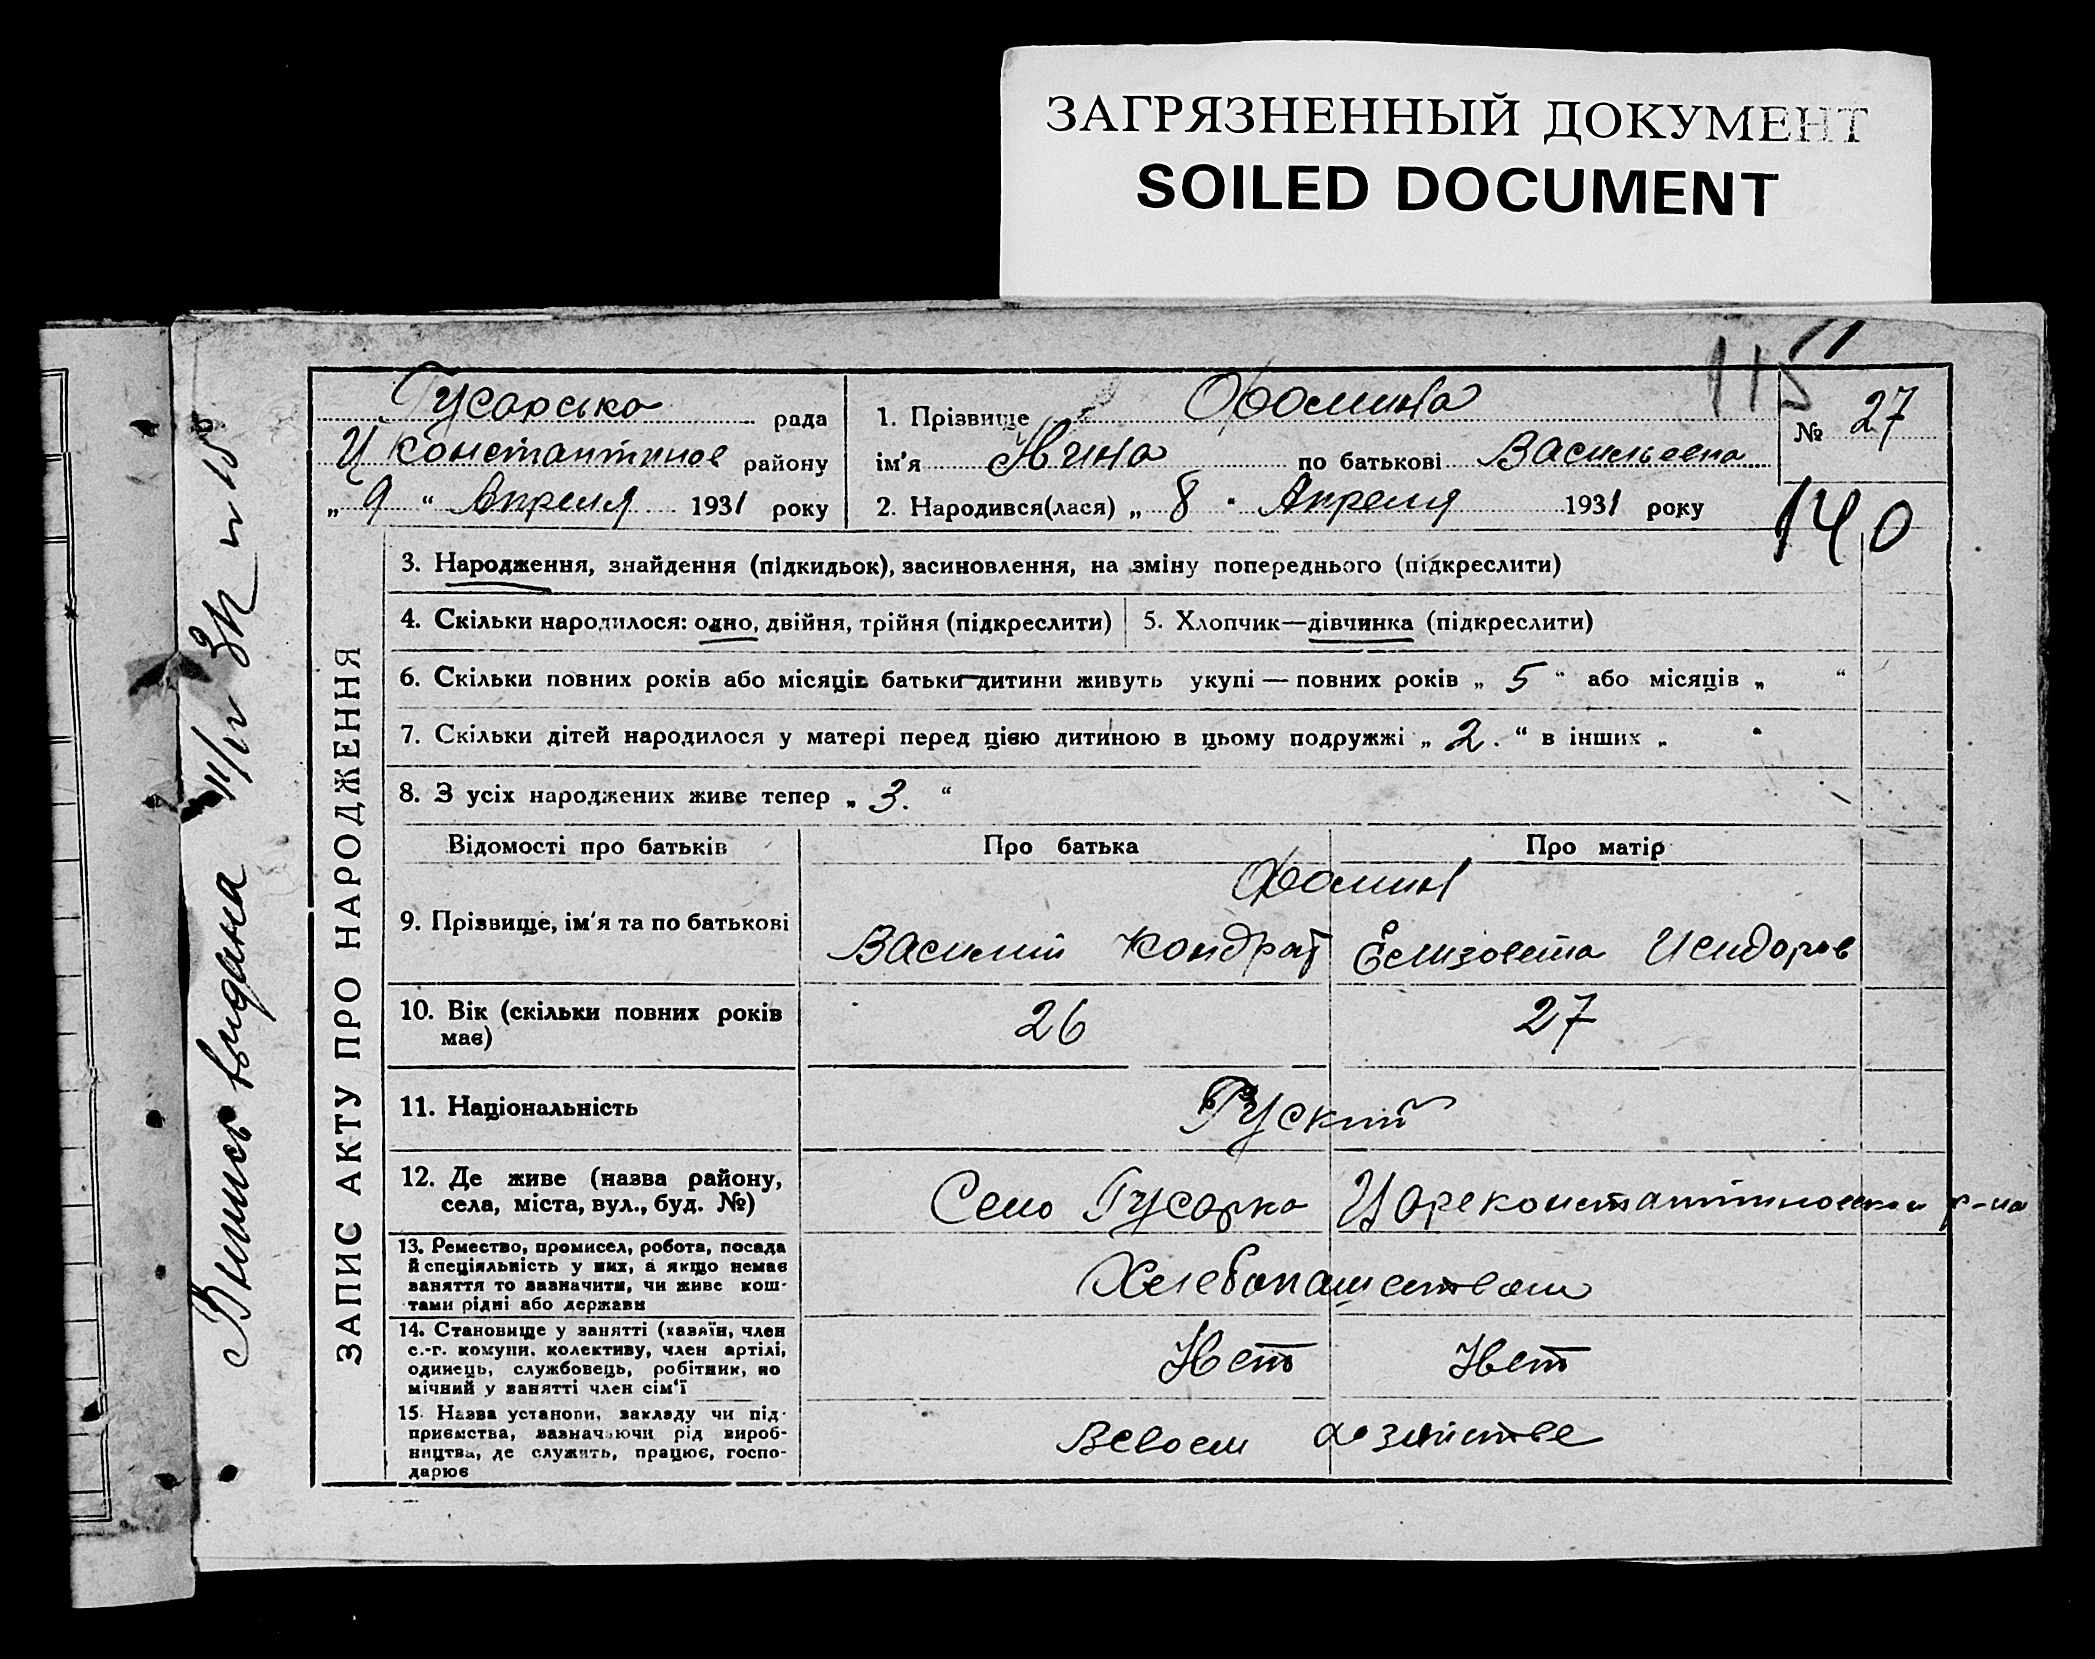 ЗАГРЯЗНЕННЫЙ ДОКУМЕНТ
SOILED DOCUMENT
115
Гусарська рада
Ц Константинов району
„ 9 “ Апреля 1931 року
1. Прізвище Фомина
ім'я Нина по батькові Васильевна
2. Народився(лася) „ 8 “ Апреля 1931 року
№ 27
140
ЗАПИС АКТУ ПРО НАРОДЖЕННЯ
3. Народження, знайдення (підкидьок), засиновлення, на зміну попереднього (підкреслити)
4. Скільки народилося: одно, двійня, трійня (підкреслити)
5. Хлопчик—дівчинка (підкреслити)
6. Скільки повних років або місяців батьки дитини живуть укупі — повних років „ 5 “ або місяців „ “
7. Скільки дітей народилося у матері перед цією дитиною в цьому подружжі „ 2. “ в інших „ “
8. З усіх народжених живе тепер „ 3. “
Відомості про батьків Про батька Про матір
Фомин
9. Прізвище, ім'я та по батькові Василий Кондрат Елизовета Исидоров
10. Вік (скільки повних років
має)
26 27
11. Національність Руский
12. Де живе (назва району,
села, міста, вул., буд. №)
Село Гусарка Цареконстантиновскои р-на
13. Ремество, промисел, робота, посада
й спеціяльність у них, а якщо немає
заняття то зазначити, чи живе кош-
тами рідні або держави
Хлебопашеством
14. Становище у занятті (хазяїн, член
с.-г. комуни, колективу, член артілі,
одинець, службовець, робітник, по
мічний у занятті член сім'ї
Нет Нет
15. Назва установи, закладу чи під-
приємства, зазначаючи рід вироб-
ництва, де служить, працює, госпо-
дарює
Всвоем хозяйстве
Выпись выдана